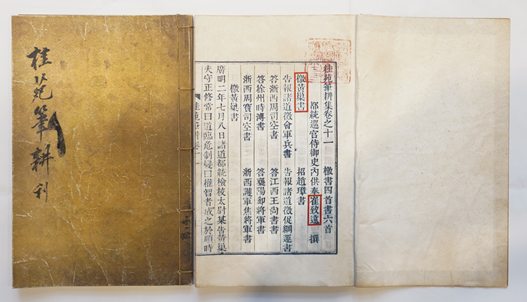 桂苑筆耕刊
桂苑筆耕集卷之十一 檄書四首書六首
都統巡官侍御史內供奉崔致遠 撰
檄黃巢書 招趙璋書
告報諸道徵會軍兵書 告報諸道徵促綱運書
答浙西周司空書 答江西王尚書書
答徐州時溥書 答襄陽郄將軍書
浙西周寶司空書 浙西護軍焦將軍書
檄黃巢書
廣明二年七月八日諸道都統檢校太尉某告黃巢
夫守正修常曰道臨危制變曰權智者成之於順時